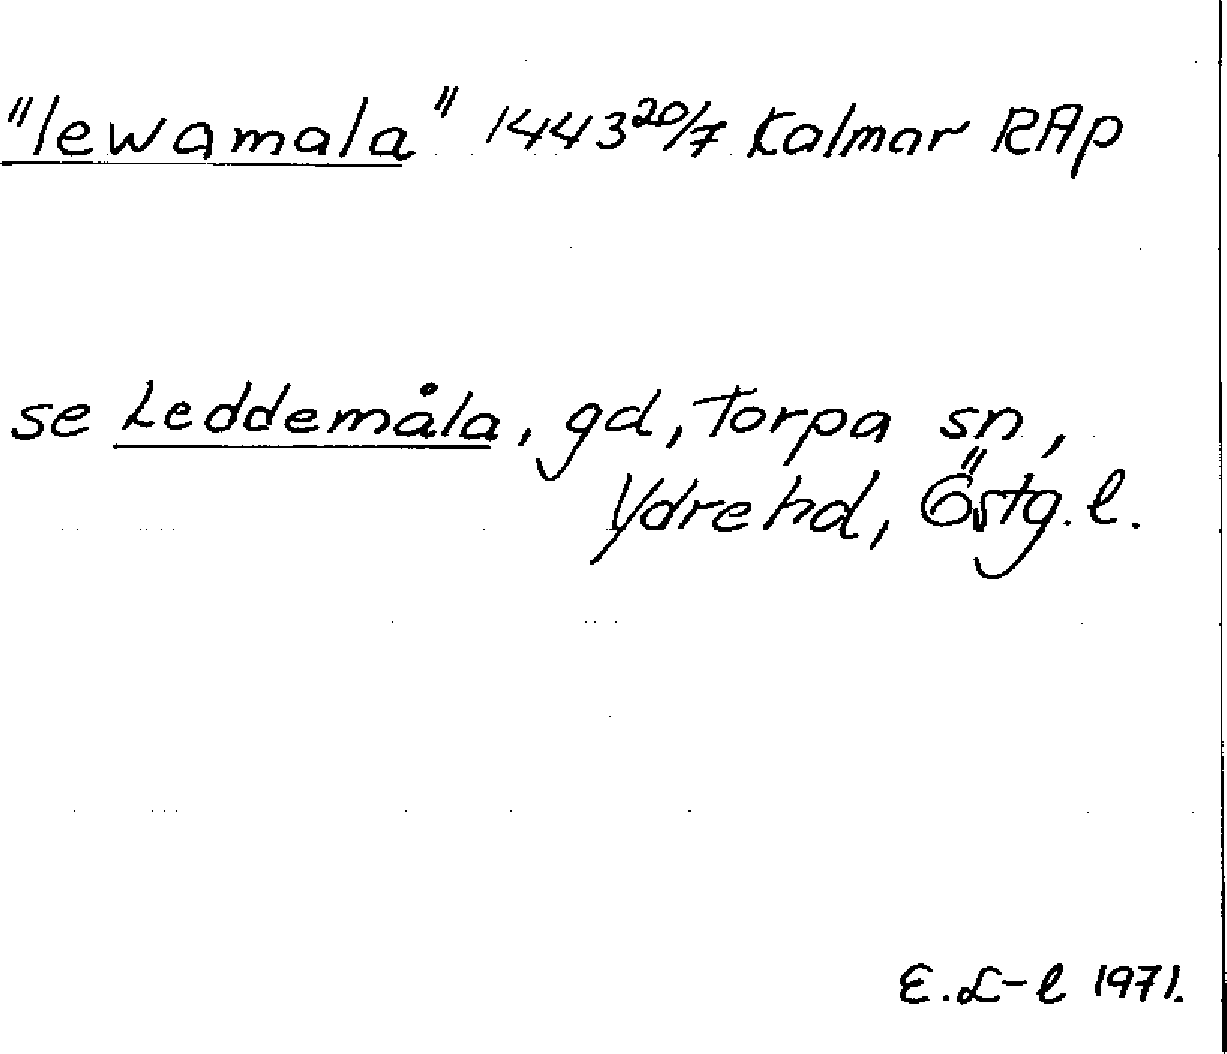 "lewamala" 1443 20/7 Kalmar RAp
se Leddemåla, gd, Torpa sn,
Ydre hd, Östg. l.
E. L-l 1971.